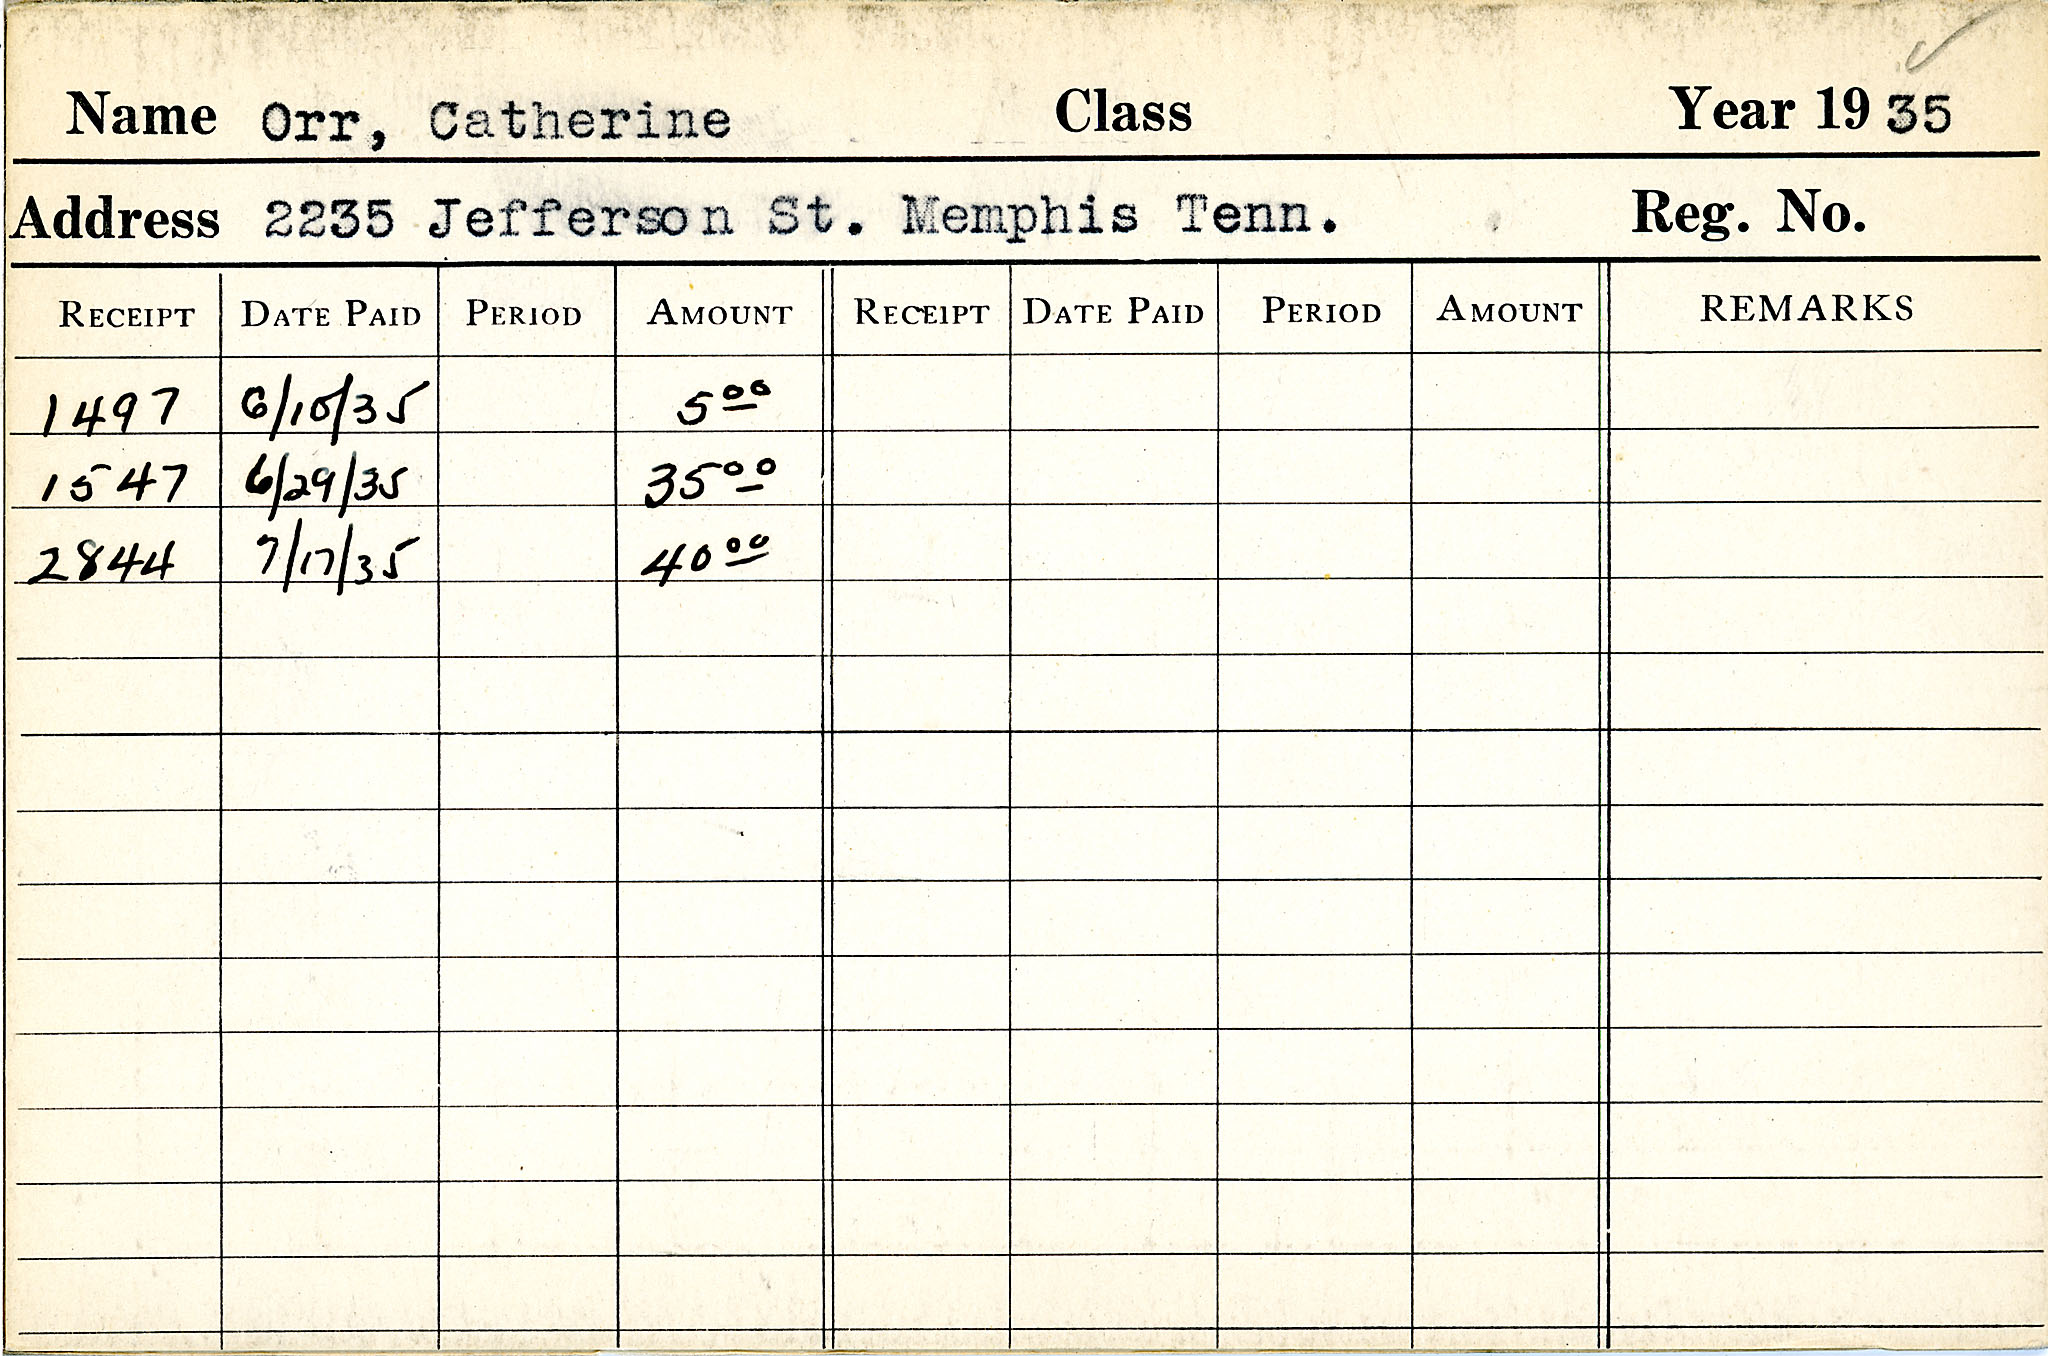 Name Orr, Catherine Class Year 1935
Address 2235 Jefferson St. Memphis Tenn. Reg. No.
RECEIPT DATE PAID PERIOD AMOUNT RECEIPT DATE PAID PERIOD AMOUNT REMARKS
1497 6/10/35 5 00
1547 6/29/35 35 00
2844 7/17/35 40 00